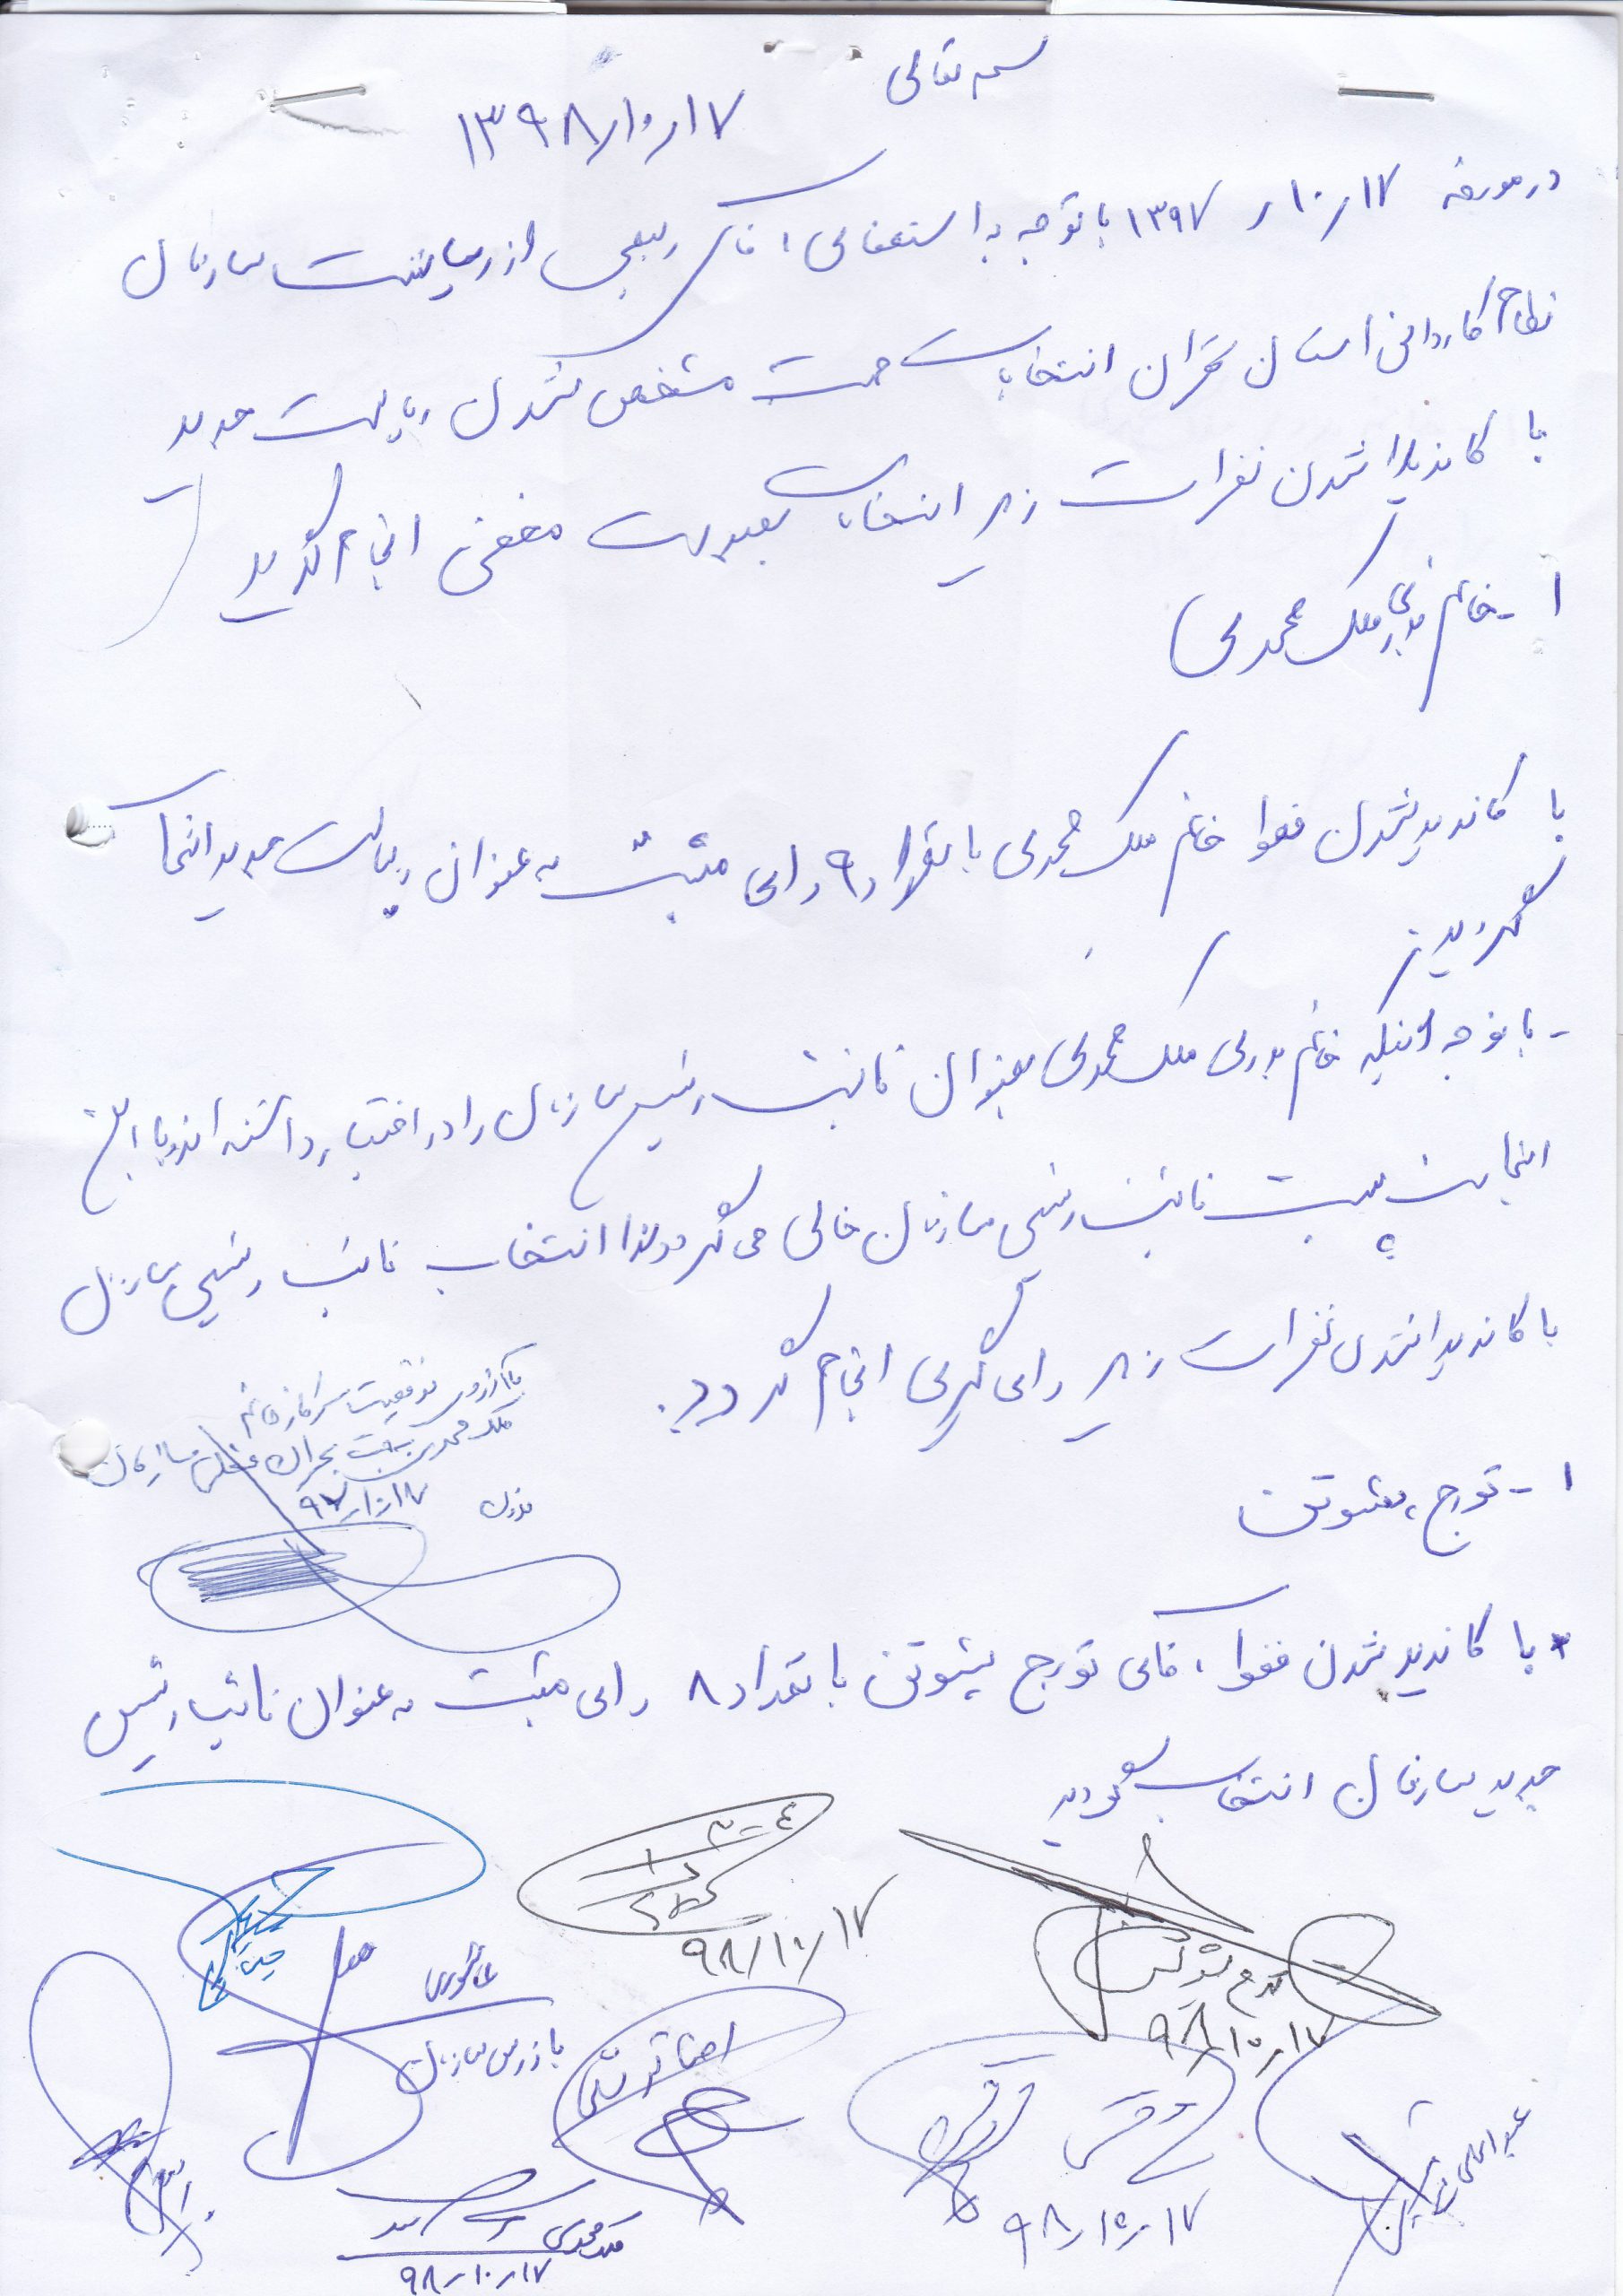 بسمه تعالی
۱۳۹۸/۱۰/۱۷
در مورخه ۱۳۹۷/۱۰/۱۷ با توجه به استعفای آقای ربیعی از ریاست سازمان
نظام کاردانی استان تهران انتخابات جهت مشخص شدن ریاست جدید
با کاندیدا شدن نفرات زیر انتخابات بصورت مخفی انجام گردید
۱- خانم پوری ملک محمدی
با کاندید شدن فقط خانم ملک محمدی با تعداد ۹ رای مثبت به عنوان ریاست جدید انتخاب
گردیدند
- با توجه اینکه خانم پوری ملک محمدی بعنوان نائب رئیس سازمان را در اختیار داشته اند و با این
انتخاب پست نائب رئیسی سازمان خالی می گردد لذا انتخاب نائب رئیسی سازمان
با کاندیدا شدن نفرات زیر رای گیری انجام گردد.
با آرزوی موفقیت سرکار خانم
ملک محمدی
۹۷/۱۰/۱۷
۱- تورج پشوتن
* با کاندید شدن فقط آقای تورج پشوتن با تعداد ۸ رای مثبت به عنوان نائب رئیس
جدید سازمان انتخاب گردید
۹۸/۱۰/۱۷
تورج پشوتن
۹۸/۱۰/۱۷
بازرس سازمان
۹۸/۱۰/۱۷
ملک محمدی
۹۸/۱۰/۱۷